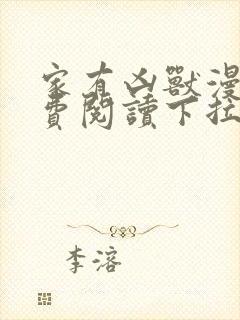 家有凶獸漫
費閱讀下拉
李溶